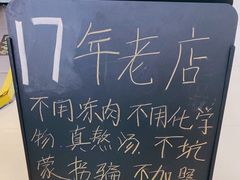 17年老店
不用冻肉 不用化学
物.真熬汤.不坑
蒙拐骗 不加